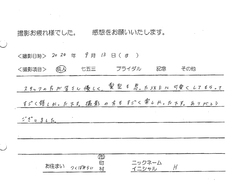 撮影お疲れ様でした。 感想をお願いいたします。
<撮影日時> 2020年 9月 13日(日)
<撮影項目> 成人 七五三 ブライダル 記念 その他
スタッフの方が皆さん優しく、髪型も思った以上に可愛くしてもらって
すごく嬉しかったです。撮影の方もすごく楽しかったです。ありがとう
ございました。
お住まい つくばみらい ニックネーム
イニシャル H